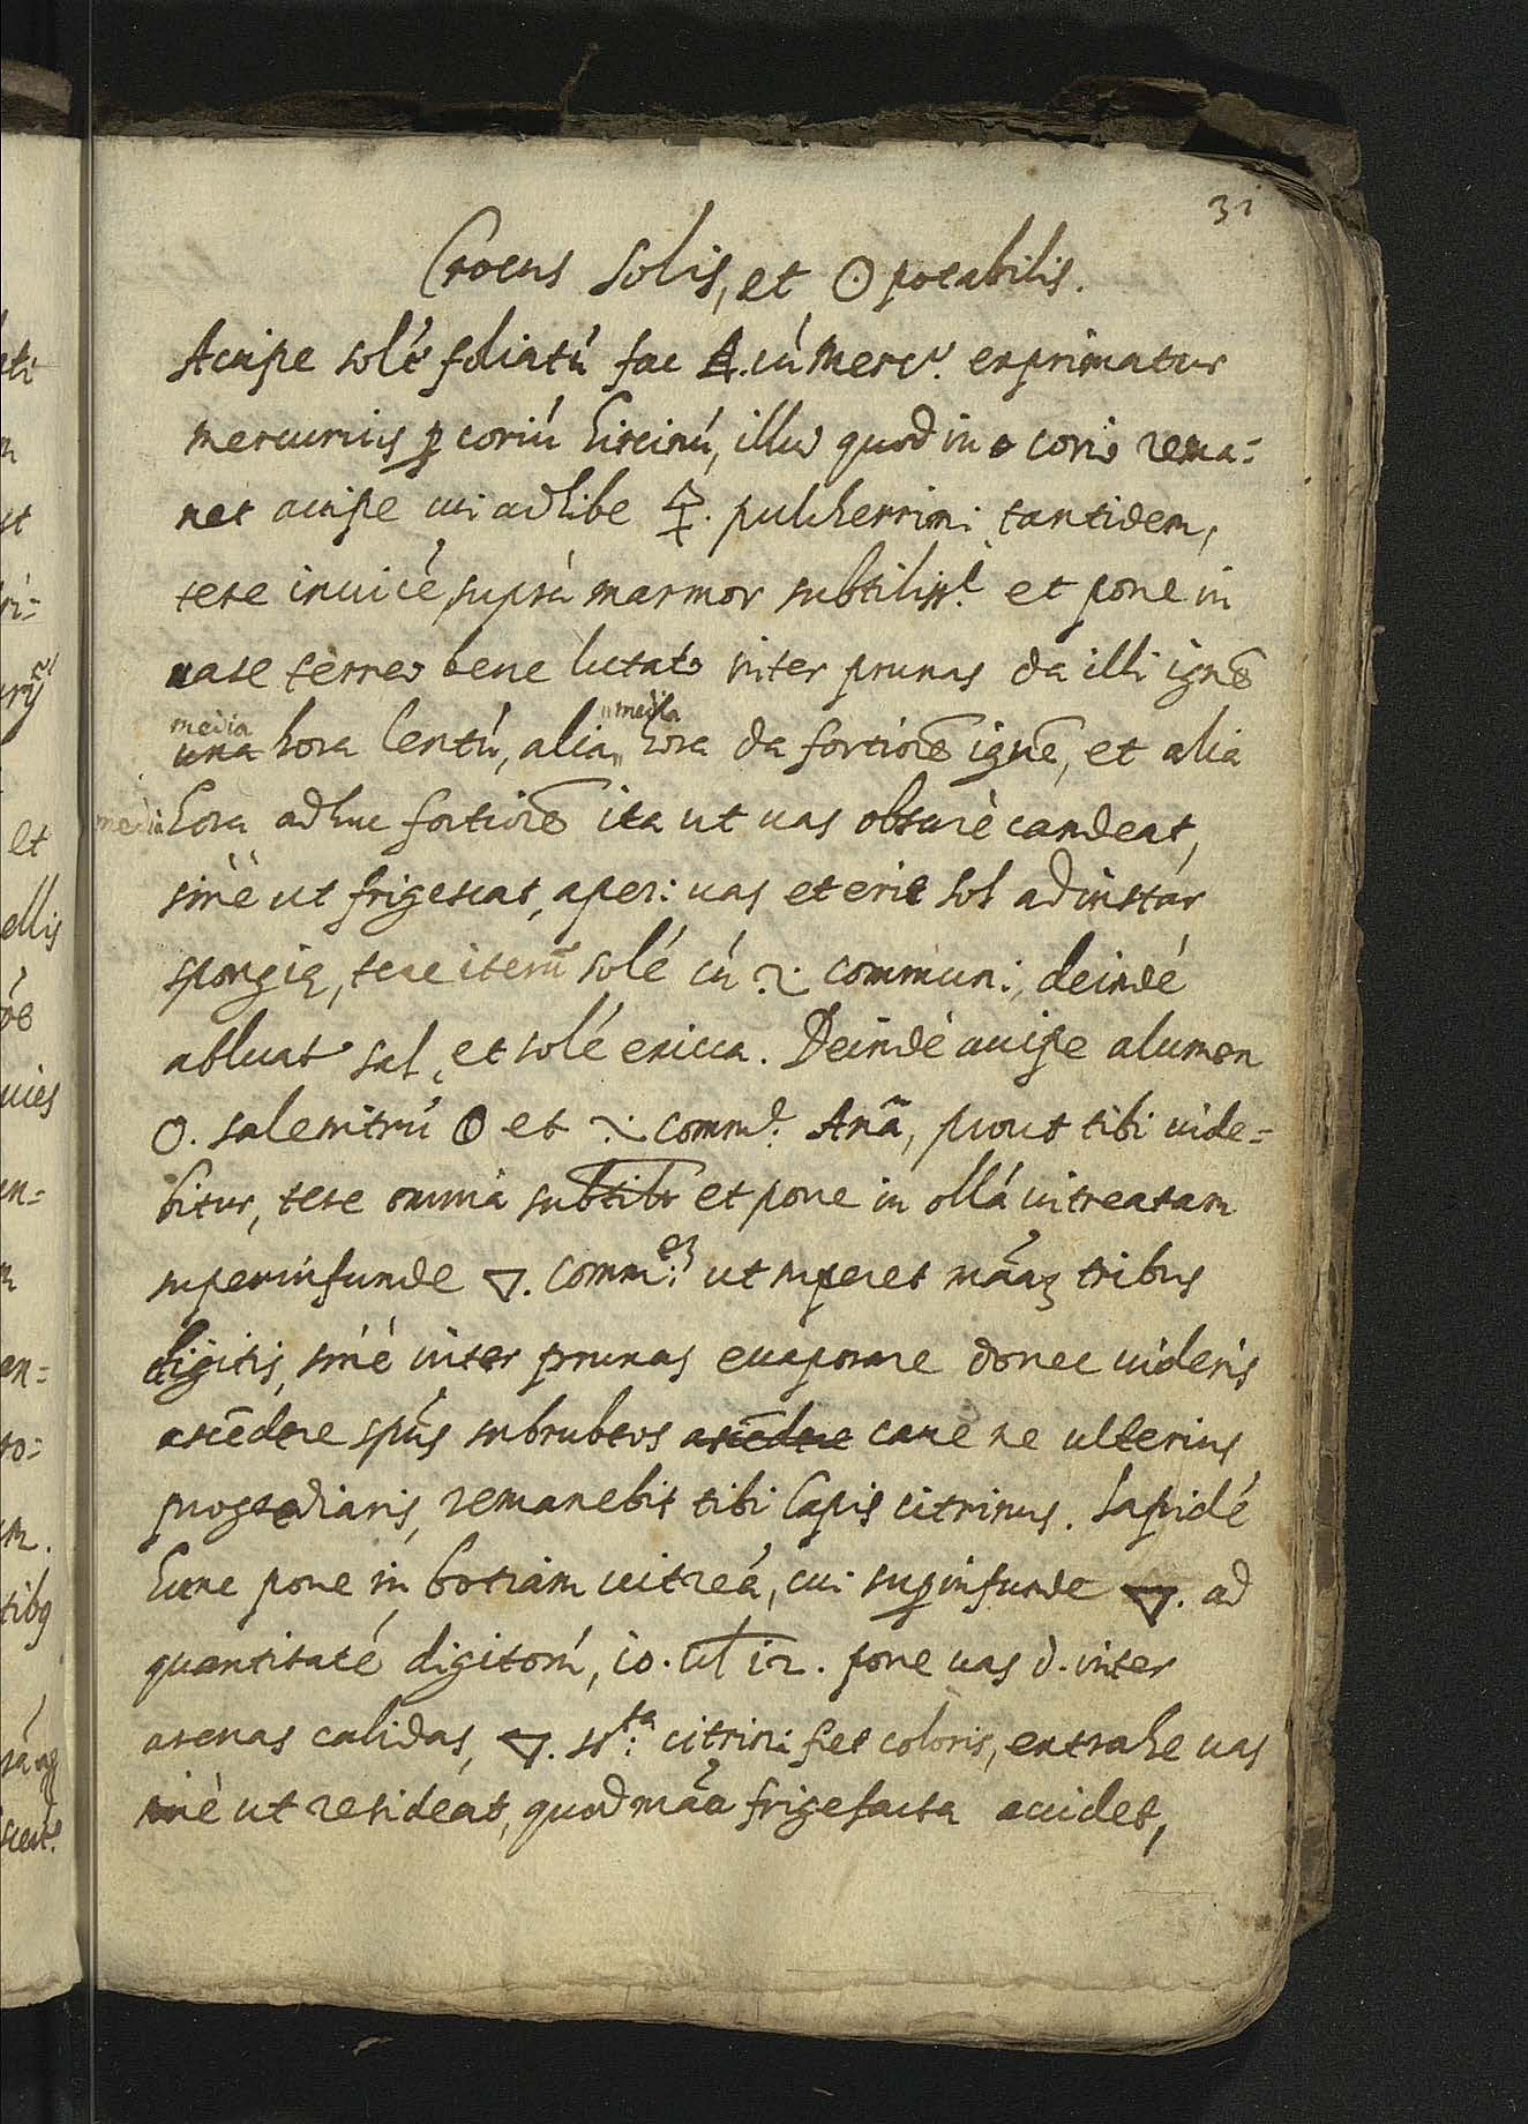 31
Crocus Solis, et ☉ potabilis.
Accipe solé foliatú fac A. cú Merc.º exprimatur
mercurius ꝑ coriú hircinú, illud quod in corio rema=
net accipe cui adhibe 🜍. pulcherrimi tantidem,
tere inuicé, suprà marmor subtiliss.e et pone in
uase terreo bene lutato inter prunas da illi ignē
media
una hora lentú, alia „media hora da fortiorē ignē, et alia
media hora adhuc fortiorē ita ut uas obscurè candeat,
sinè ut frigescat, aper: uas et erit sol ad instar
spongię, tere iterū solé cú communi, deindé
abluat sal, et solé exicca. Deindè accipe alumen
O. salenitrú et com̄.e Anā, prout tibi uide=
bitur, tere omnia subtilr et pone in ollá uitreatam
superinfunde 🜄. comm:em ut superet māaʒ tribus
digitis, siné inter prunas euaporare donec uideris
ascēdere spús subrubeos ascēdere caue ne ulterius
progrediaris, remanebit tibi lapis citrinus. Lapidé
hunc pone in botiam uitreá, cui suꝑinfunde 🜄. ad
quantitaté digitorú, 10. ul 12. pone uas d. inter
arenas calidas, 🜄. st:ta citrini fiet coloris, extrahe uas
sinè ut resideat, quod māa frigefacta accidet,
et
ellis
uies